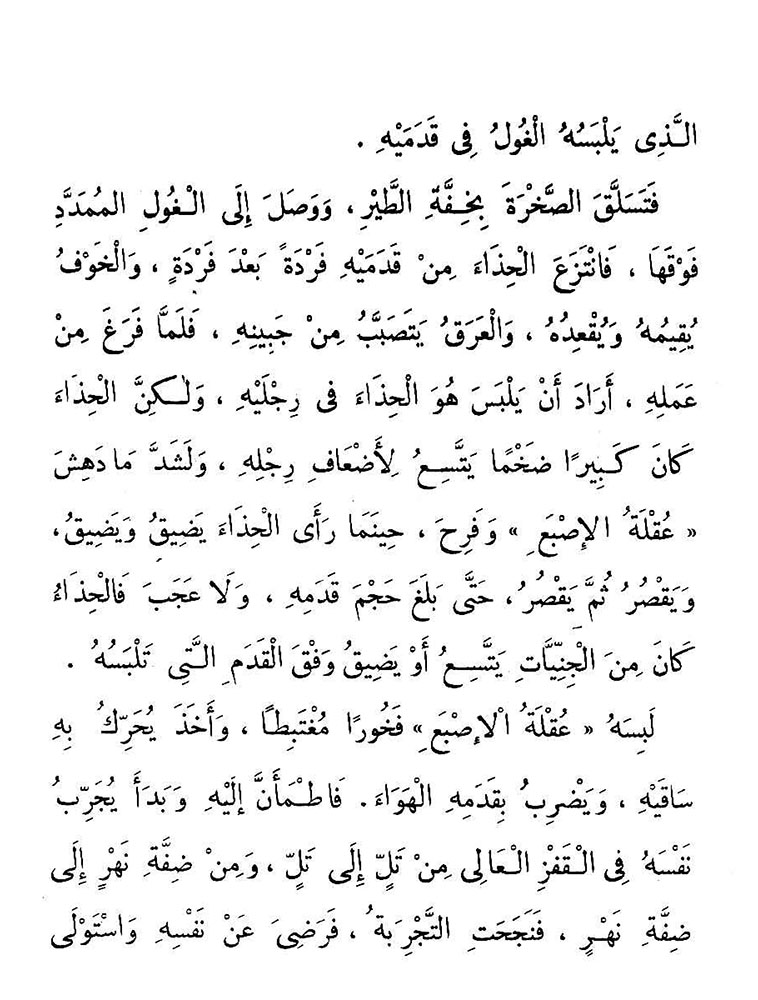 الَّذِى يَلْبَسُهُ الْغُولُ فِى قَدَمَيْهِ .
فَتَسَلَّقَ الصَّخْرَةَ بِخِفَّةِ الطَّيْرِ ، وَوَصَلَ إِلَى الْغُولِ المُمَدَّدِ
فَوْقَهَا ، فَانْتَزَعَ الْحِذَاءَ مِنْ قَدَمَيْهِ فَرْدَةً بَعْدَ فَرْدَةٍ ، وَالْخَوْفُ
يُقِيمُهُ وَيُقْعِدُهُ ، وَالْعَرَقُ يَتَصَبَّبُ مِنْ جَبِينِهِ ، فَلَمَّا فَرَغَ مِنْ
عَمَلِهِ ، أَرَادَ أَنْ يَلْبَسَ هُوَ الْحِذَاءَ فى رِجْلَيْهِ ، وَلٰكِنَّ الْحِذَاءَ
كَانَ كَبِيرًا ضَخْمًا يَتَّسِعُ لِأَضْعَافِ رِجْلِهِ ، وَلَشَدَّ مَا دَهِشَ
« عُقْلَةُ الإِصْبَعِ » وَفَرِحَ ، حِينَمَا رَأَى الْحِذَاءَ يَضِيقُ وَيَضِيقُ،
وَيَقْصُرُ ثُمَّ يَقْصُرُ، حَتَّى بَلَغَ حَجْمَ قَدَمِهِ ، وَلَا عَجَبَ فَالْحِذَاءُ
كَانَ مِنَ الْجِنِّيَّاتِ يَتَّسِعُ أَوْ يَضِيقُ وَفْقَ الْقَدَمِ الَّتِى تَلْبَسُهُ .
لَبِسَهُ « عُقْلَةُ الْإِصْبَعِ » فَخُورًا مُغْتَبِطًا ، وَأَخَذَ يُحَرِّكُ بِهِ
سَاقَيْهِ ، وَيَضْرِبُ بِقَدَمِهِ الْهَوَاءَ. فَاطْمَأَنَّ إِلَيْهِ وَبَدَأَ يُجَرِّبُ
نَفْسَهُ فِى الْقَفْزِ الْعَالِى مِنْ تَلٍّ إِلَى تَلٍّ ، وَمِنْ ضِفَّةِ نَهْرٍ إِلَى
ضِفَّةِ نَهْرٍ ، فَنَجَحَتِ التَّجْرِبَةُ ، فَرَضِىَ عَنْ نَفْسِهِ وَاسْتَوْلَى